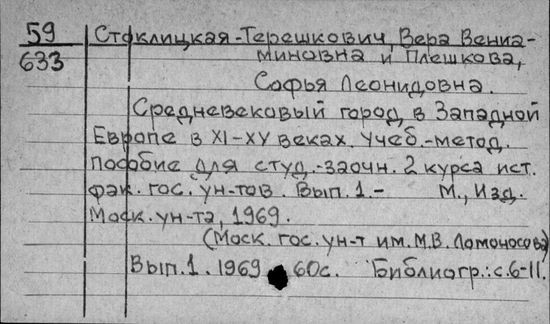 59 Стоклицкая-Терешкович, Вера Вениа-
633 миновна и Плешкова,
Софья Леонидовна.
Средневековый город в Западной
Европе в XI-XV веках. Учеб.-метод.
пособие для студ.-заочн. 2 курса ист.
фак. гос. ун-тов. Вып. 1.- М., Изд.
Моск. ун-та, 1969.
(Моск. гос. ун-т им. М.В. Ломоносова)
Вып. 1. 1969 60с. Библиогр.: с. 6-11.